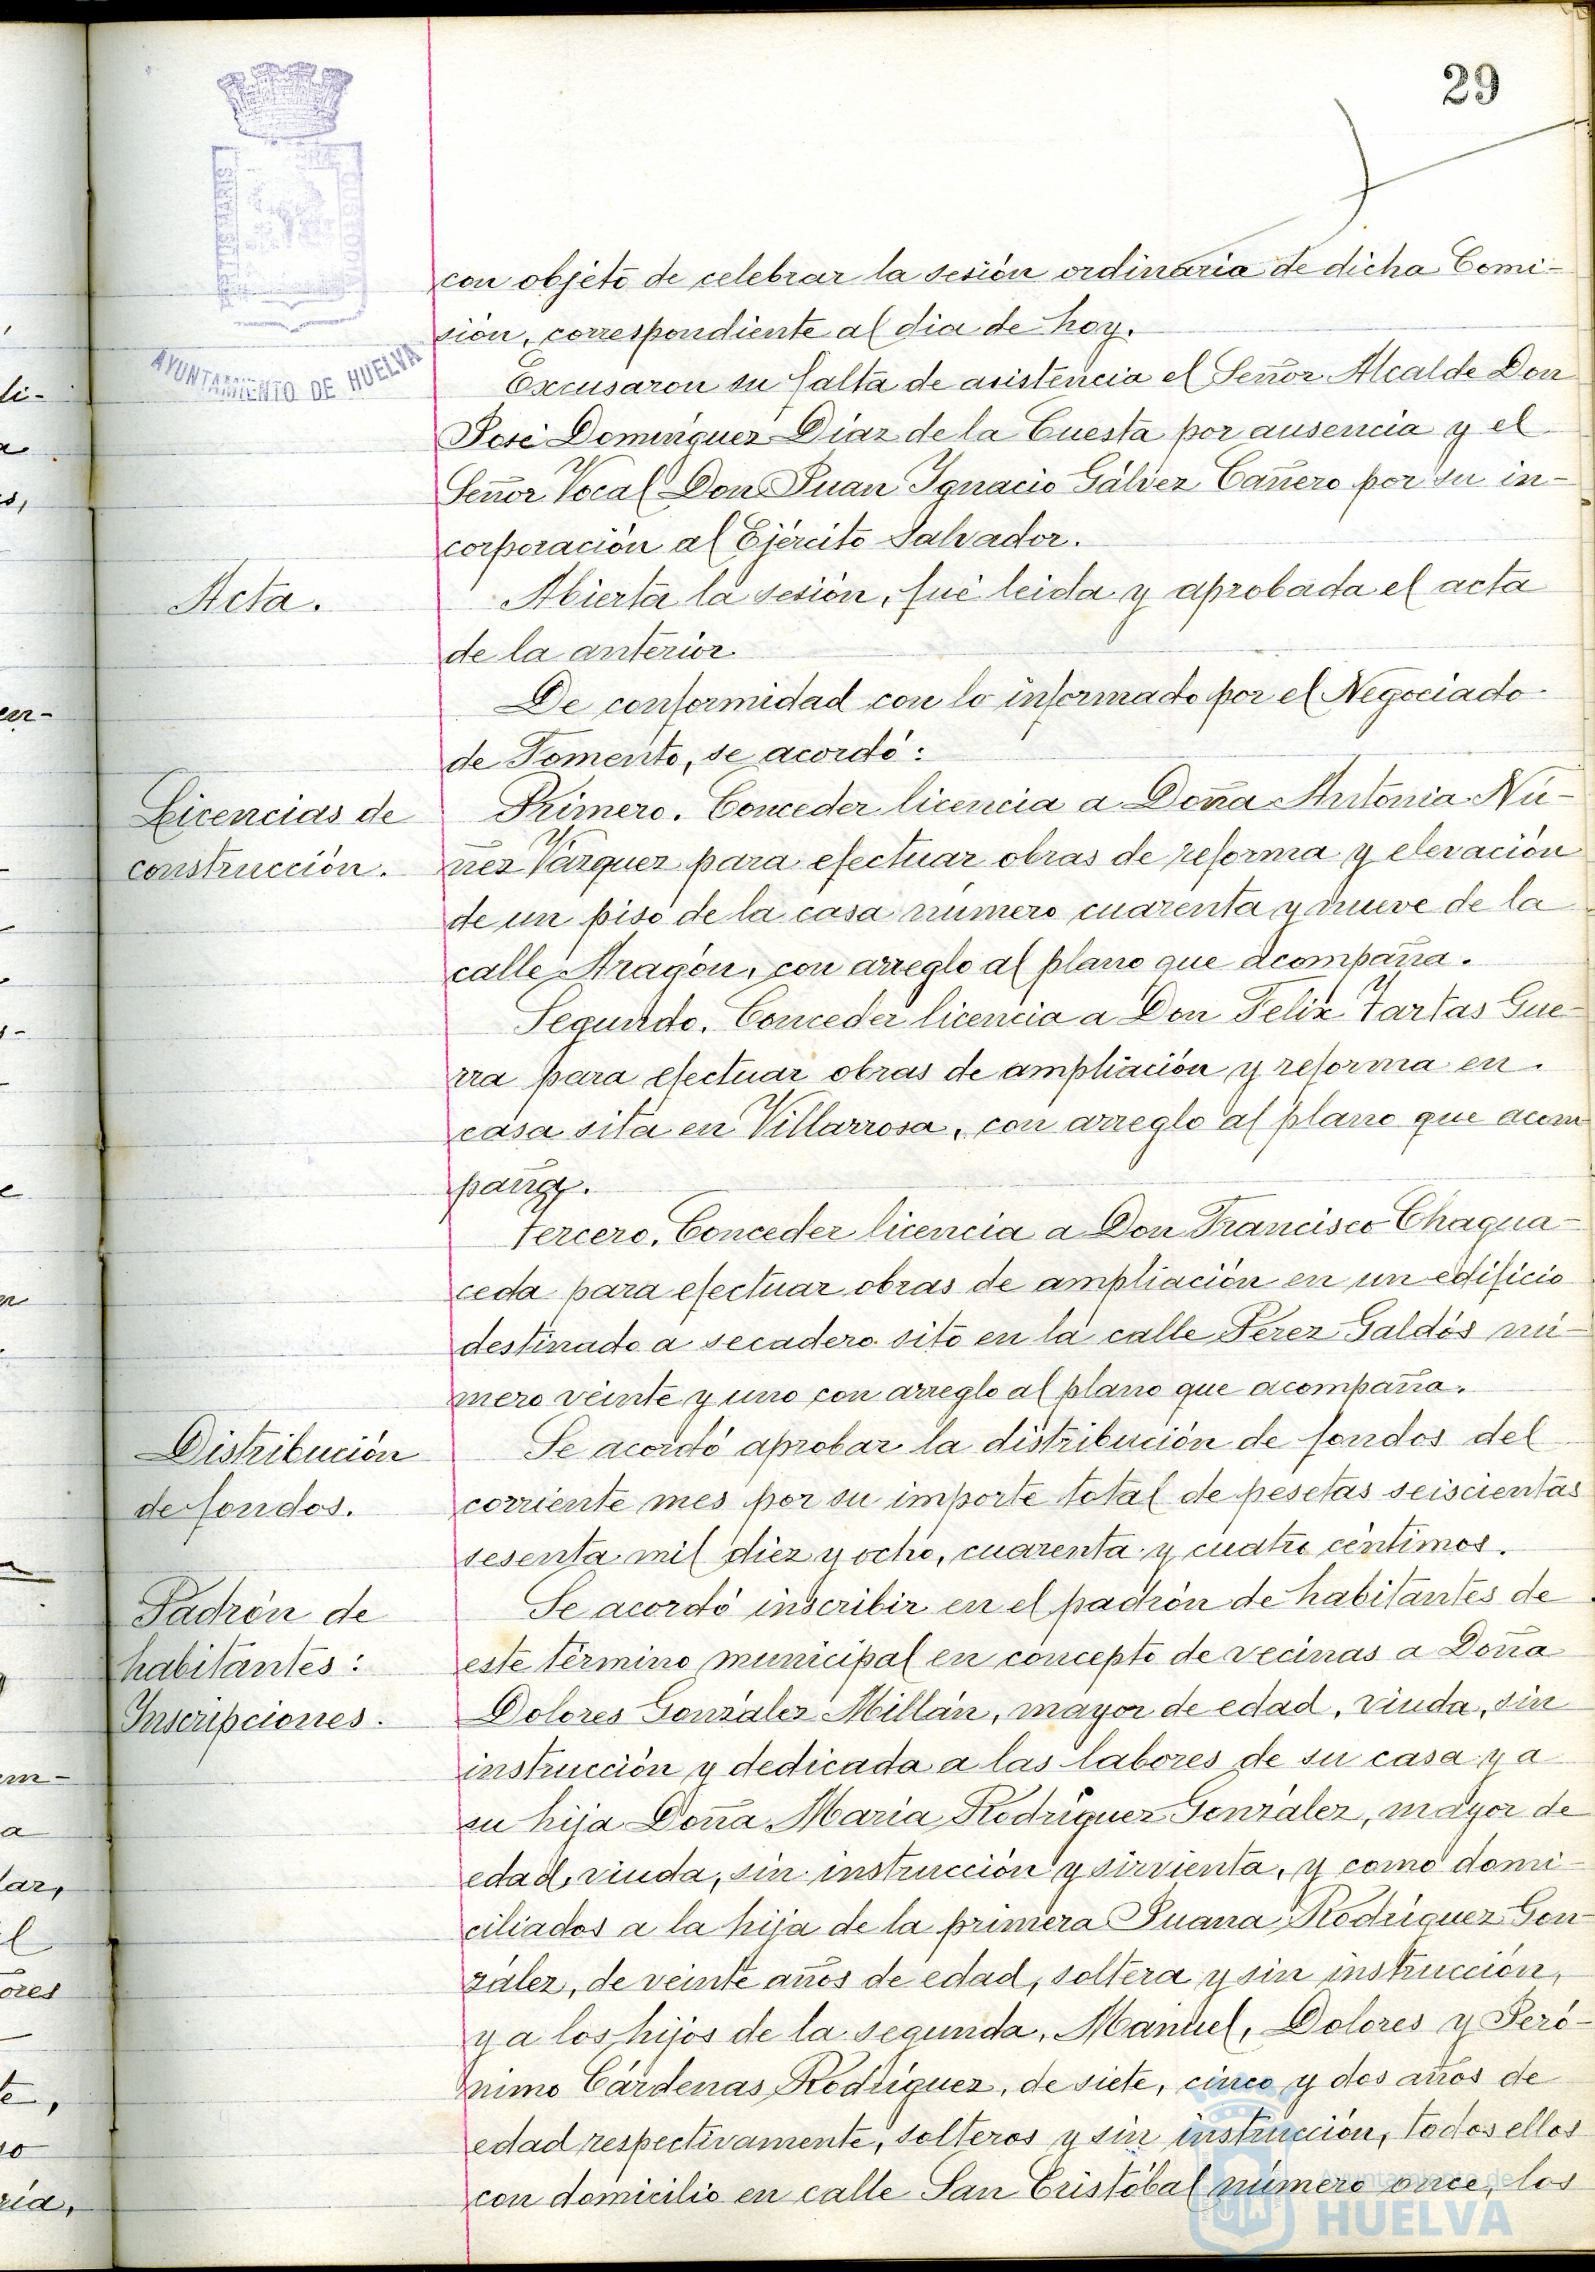 29
AYUNTAMIENTO DE HUELVA
con objeto de celebrar la sesión ordinaria de dicha Comi-
sión, correspondiente al dia de hoy.
Excusaron su falta de asistencia el Señor Alcalde Don
José Domínguez Díaz de la Cuesta por ausencia y el
Señor Vocal Don Juan Ignacio Gálvez Cañero por su in-
corporación al Ejército Salvador.
Acta.
Abierta la sesión, fué leida y aprobada el acta
de la anterior.
De conformidad con lo informado por el Negociado
de Fomento, se acordó:
Licencias de
construcción.
Primero. Conceder licencia a Doña Antonia Nú-
ñez Vázquez para efectuar obras de reforma y elevación
de un piso de la casa número cuarenta y nueve de la
calle Aragón, con arreglo al plano que acompaña.
Segundo. Conceder licencia a Don Felix Tartas Gue-
rra para efectuar obras de ampliación y reforma en
casa sita en Villarrosa, con arreglo al plano que acom
paña.
Tercero. Conceder licencia a Don Francisco Chagua-
ceda para efectuar obras de ampliación en un edificio
destinado a secadero sito en la calle Pérez Galdós nú-
mero veinte y uno con arreglo al plano que acompaña.
Distribución
de fondos.
Se acordó aprobar la distribución de fondos del
corriente mes por su importe total de pesetas seiscientas
sesenta mil diez y ocho, cuarenta y cuatro céntimos.
Padrón de
habitantes:
Inscripciones.
Se acordó inscribir en el padrón de habitantes de
este término municipal en concepto de vecinas a Doña
Dolores González Millán, mayor de edad, viuda, sin
instrucción y dedicada a las labores de su casa y a
su hija Doña María Rodríguez González, mayor de
edad, viuda, sin instrucción y sirvienta, y como domi-
ciliados a la hija de la primera Juana Rodríguez Gon-
zález, de veinte años de edad, soltera y sin instrucción,
y a los hijos de la segunda, Manuel, Dolores y Jeró-
nimo Cárdenas Rodríguez, de siete, cinco y dos años de
edad respectivamente, solteros y sin instrucción, todos ellos
con domicilio en calle San Cristóbal número once, los
Ayuntamiento de
HUELVA